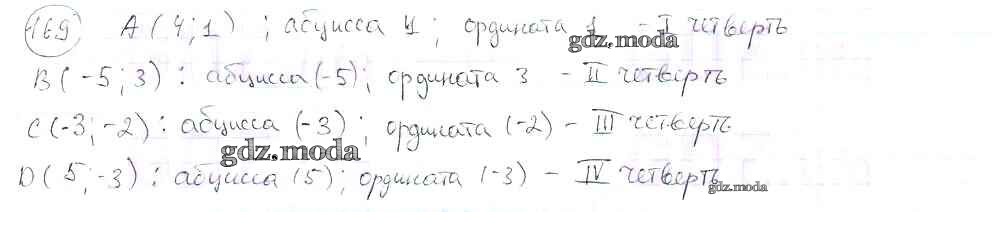 169) A(4;1) ; абцисса 4 ; ордината 1 - I четверть
gdz.moda
B(-5;3) : абцисса (-5); ордината 3 - II четверть
C(-3;-2) : абцисса (-3) ; ордината (-2) - III четверть
gdz.moda
D(5;-3) : абцисса (5); ордината (-3) - IV четверть
gdz.moda